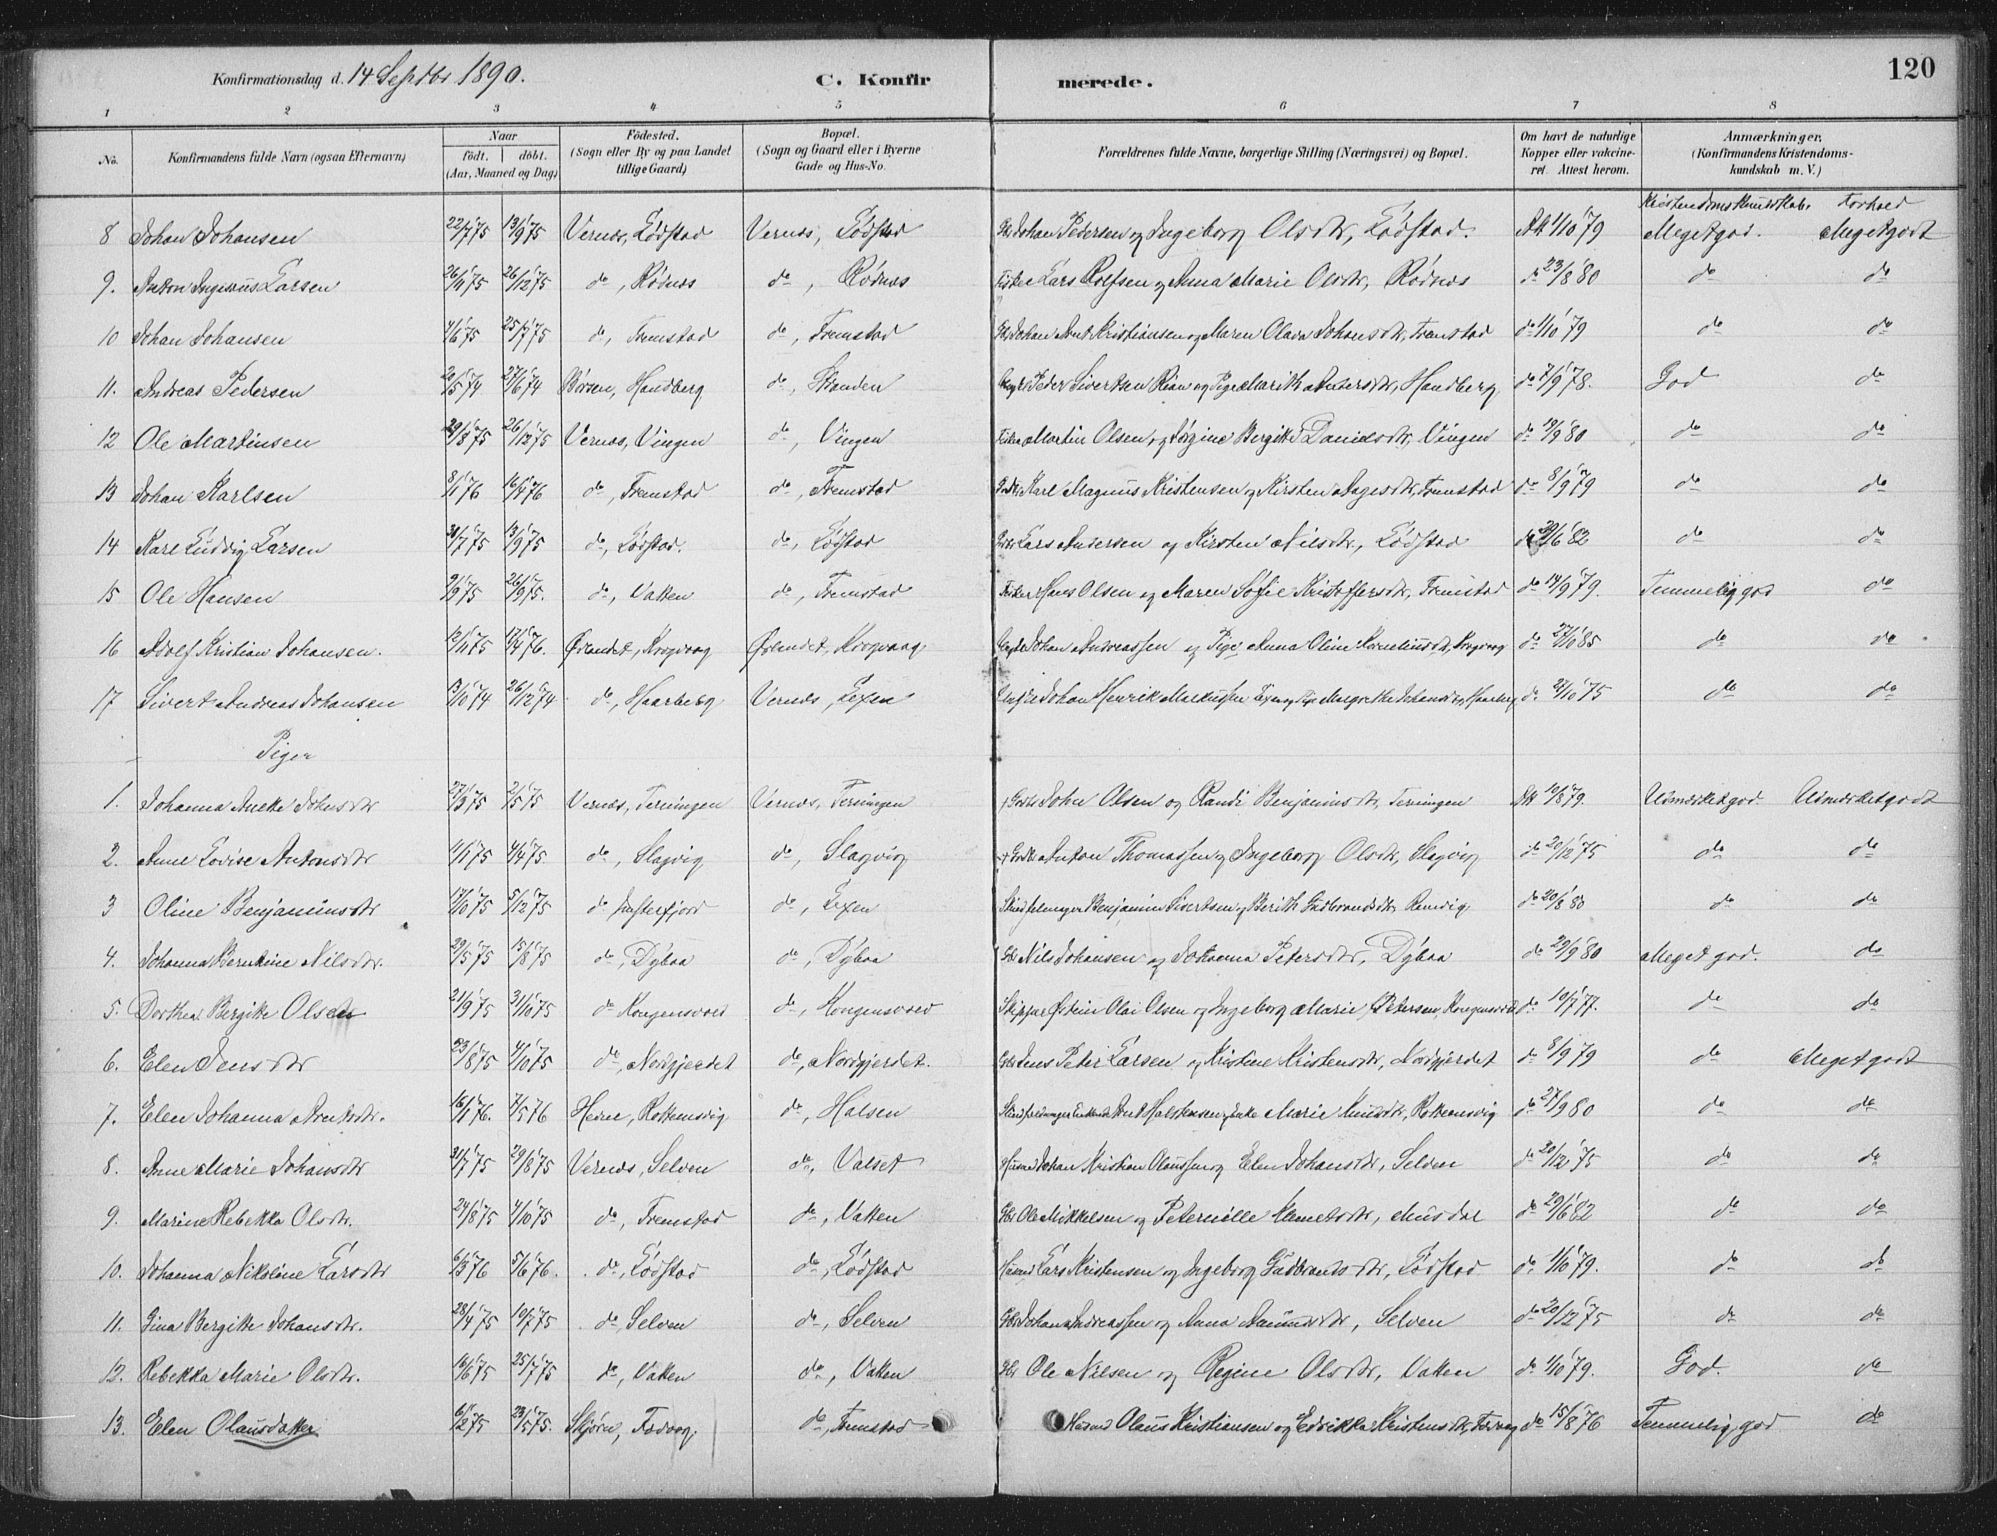 Konfirmationsdag d. 14 Septbr 1890. C. Konfir merede. 120
1 2 3 4 5 6 7 8
No. Konfirmandens fulde Navn (ogsaa Efternavn) Naar födt. döbt. (Aar, Maaned og Dag) Födested. (Sogn eller By og paa Landet tillige Gaard) Bopæl. (Sogn og Gaard eller i Byerne Gade og Hus-No. Forældrenes fulde Navne, borgerlige Stilling (Næringsvei) og Bopæl. Om havt de naturlige Kopper eller vakcineret. Attest herom. Anmærkninger, (Konfirmandens Kristendomskundskab m. V.)
Kristendomskundskab. Forhold
8 Johan Johansen 22/7 75 13/9 75 Vernæs, Lödstad Vernæs, Lödstad Johan Pedersen og Ingeborg Olsdtr, Lödstad. 1/10 79 Meget god. Meget godt
9. Anton Larsen 26/11 75 26/12 75 do, Rödnæs do, Rödnæs Fisker Lars Rolfsen og Anna Marie Olsdtr, Rödnæs do 23/8 80 do do
10 Johan Johansen 1/6 75 25/7 75 do, Fremstad do, Fremstad Johan Arnt Kristiansen og Maren Olava Johansdtr, Fremstad do 1/10 79 do do
11. Andreas Pedersen 20/5 74 27/6 74 Börsen, Handberg do, Stranden Peder Sivertsen Rian og Pige Marith Andersdtr, Handberg do 7/9 78. God do
12 Ole Martinsen 29/8 75 26/12 75 Vernæs, Vingen do, Vingen Fisker Martin Olsen og Jörgine Bergitte Danielsdtr, Vingen do 19/9 80 do do
13 Johan Karlsen 8/1 76 16/4 76 do, Fremstad do, Fremstad Karl Magnus Kristensen og Kirsten Aagesdtr, Fremstad do 8/9 79 do do
14 Karl Ludvig Larsen 31/7 75 13/9 75 do, Lödstad. do, Lödstad Lars Andersen og Kirsten Nilsdtr, Lödstad do 29/6 82 do do
15 Ole Hansen 26/9 75. do, Vatten do, Fremstad Fisker Hans Olsen og Maren Sofie Kristoffersdtr, Fremstad do 14/9 79. Temmelig god do
16 Adolf Kristian Johansen. 12/11 75 17/4 76. Örlandet, Krogvaag Örlandet, Krogvaag Johan Andreassen og Pige Anna Oline Korneliusdtr, Krogvaag do 27/10 85 do do
17 Sivert Andreas Johansen 13/10 74 26/12 74 do, Haarberg Vernæs, Lexen Johan Henrik Markussen Lexen og Pige Margrethe Johansdtr, Haarberg do 27/10 75 do do
Piger
1. Johanna Aneke Johnsdtr 27/3 75 2/5 75 Vernæs, Terningen Vernæs, Terningen John Olsen og Randi Benjaminsdtr, Terningen 19/8 79. Udmærket god. Udmærket godt
2. Anne Lovise Antonsdtr 1/1 75 4/4 75. do, Slagvig do, Slagvig Anton Thomassen og Ingeborg Olsdtr, Slagvig do 20/12 75 do do
3 Oline Benjaminsdtr 17/10 75 5/12 75 do do, Lexen Benjamin Sivertsen og Berith Gudbrandsdtr do 20/8 80 do do
4. Johanna Berntine Nilsdtr. 29/5 75 15/8 75 do, Dybaa do, Dybaa Nils Johansen og Johanna Petersdtr, Dybaa do 29/9 80 Meget god. do
5. Dorthea Bergitte Olsen 21/9 75 31/10 75 do Kongensvold do, Kongensvold Skipper Östein Olai Olsen og Ingeborg Marie Petersen, Kongensvold do 10/7 77. do do
6. Elen Jensdtr 23/8 75 4/10 75 do, Nordgjerdet do, Nordgjerdet. Jens Peter Larsen og Kristine Kristensdtr, Nordgjerdet do 8/9 79 do Meget godt
7. Elen Johanna Arntsdtr. 16/1 76. 7/5 76 Hevne, Rottemsvig do, Halsen Arnt Halstensen Marie Knudsdtr, Rottemsvig do 27/9 80 do do
8. Anne Marie Johansdtr 31/7 75 29/8 75 Vernæs, Selven do, Valset Husmd Johan Kristian Olaussen og Elen Johansdtr, Selven do 20/12 75 do do
9. Marine Rebekka Olsdtr. 24/8 75 4/10 75 do, Fremstad do, Vatten Ole Mikkelsen og Peternille Kanutsdtr, Musdal do 29/6 82 do do
10. Johanna Nikoline Larsdtr 6/3 76 5/6 76. do, Lödstad do, Lödstad Husmd Lars Kristensen og Ingeborg Gudbrandsdtr, Lödstad do 1/10 79. do do
11. Gina Bergitte Johansdtr. 28/4 75 10/7 75 do, Selven do, Selven Johan Andreassen og Anna Amundsdtr, Selven do 20/12 75 do do
12. Rebekka Marie Olsdtr. 16/6 75 25/7 75 do, Vatten do, Vatten Ole Nilsen og Regine Olsdtr, Vatten do 1/10 79. God. do
13. Elen Olausdatter 6/2 75 23/5 75. Skjörn, Fævaag. do, Fremstad Husmd Olaus Kristiansen og Edrikka Kristensdtr, Fævaag do 15/8 76 Temmelig god do